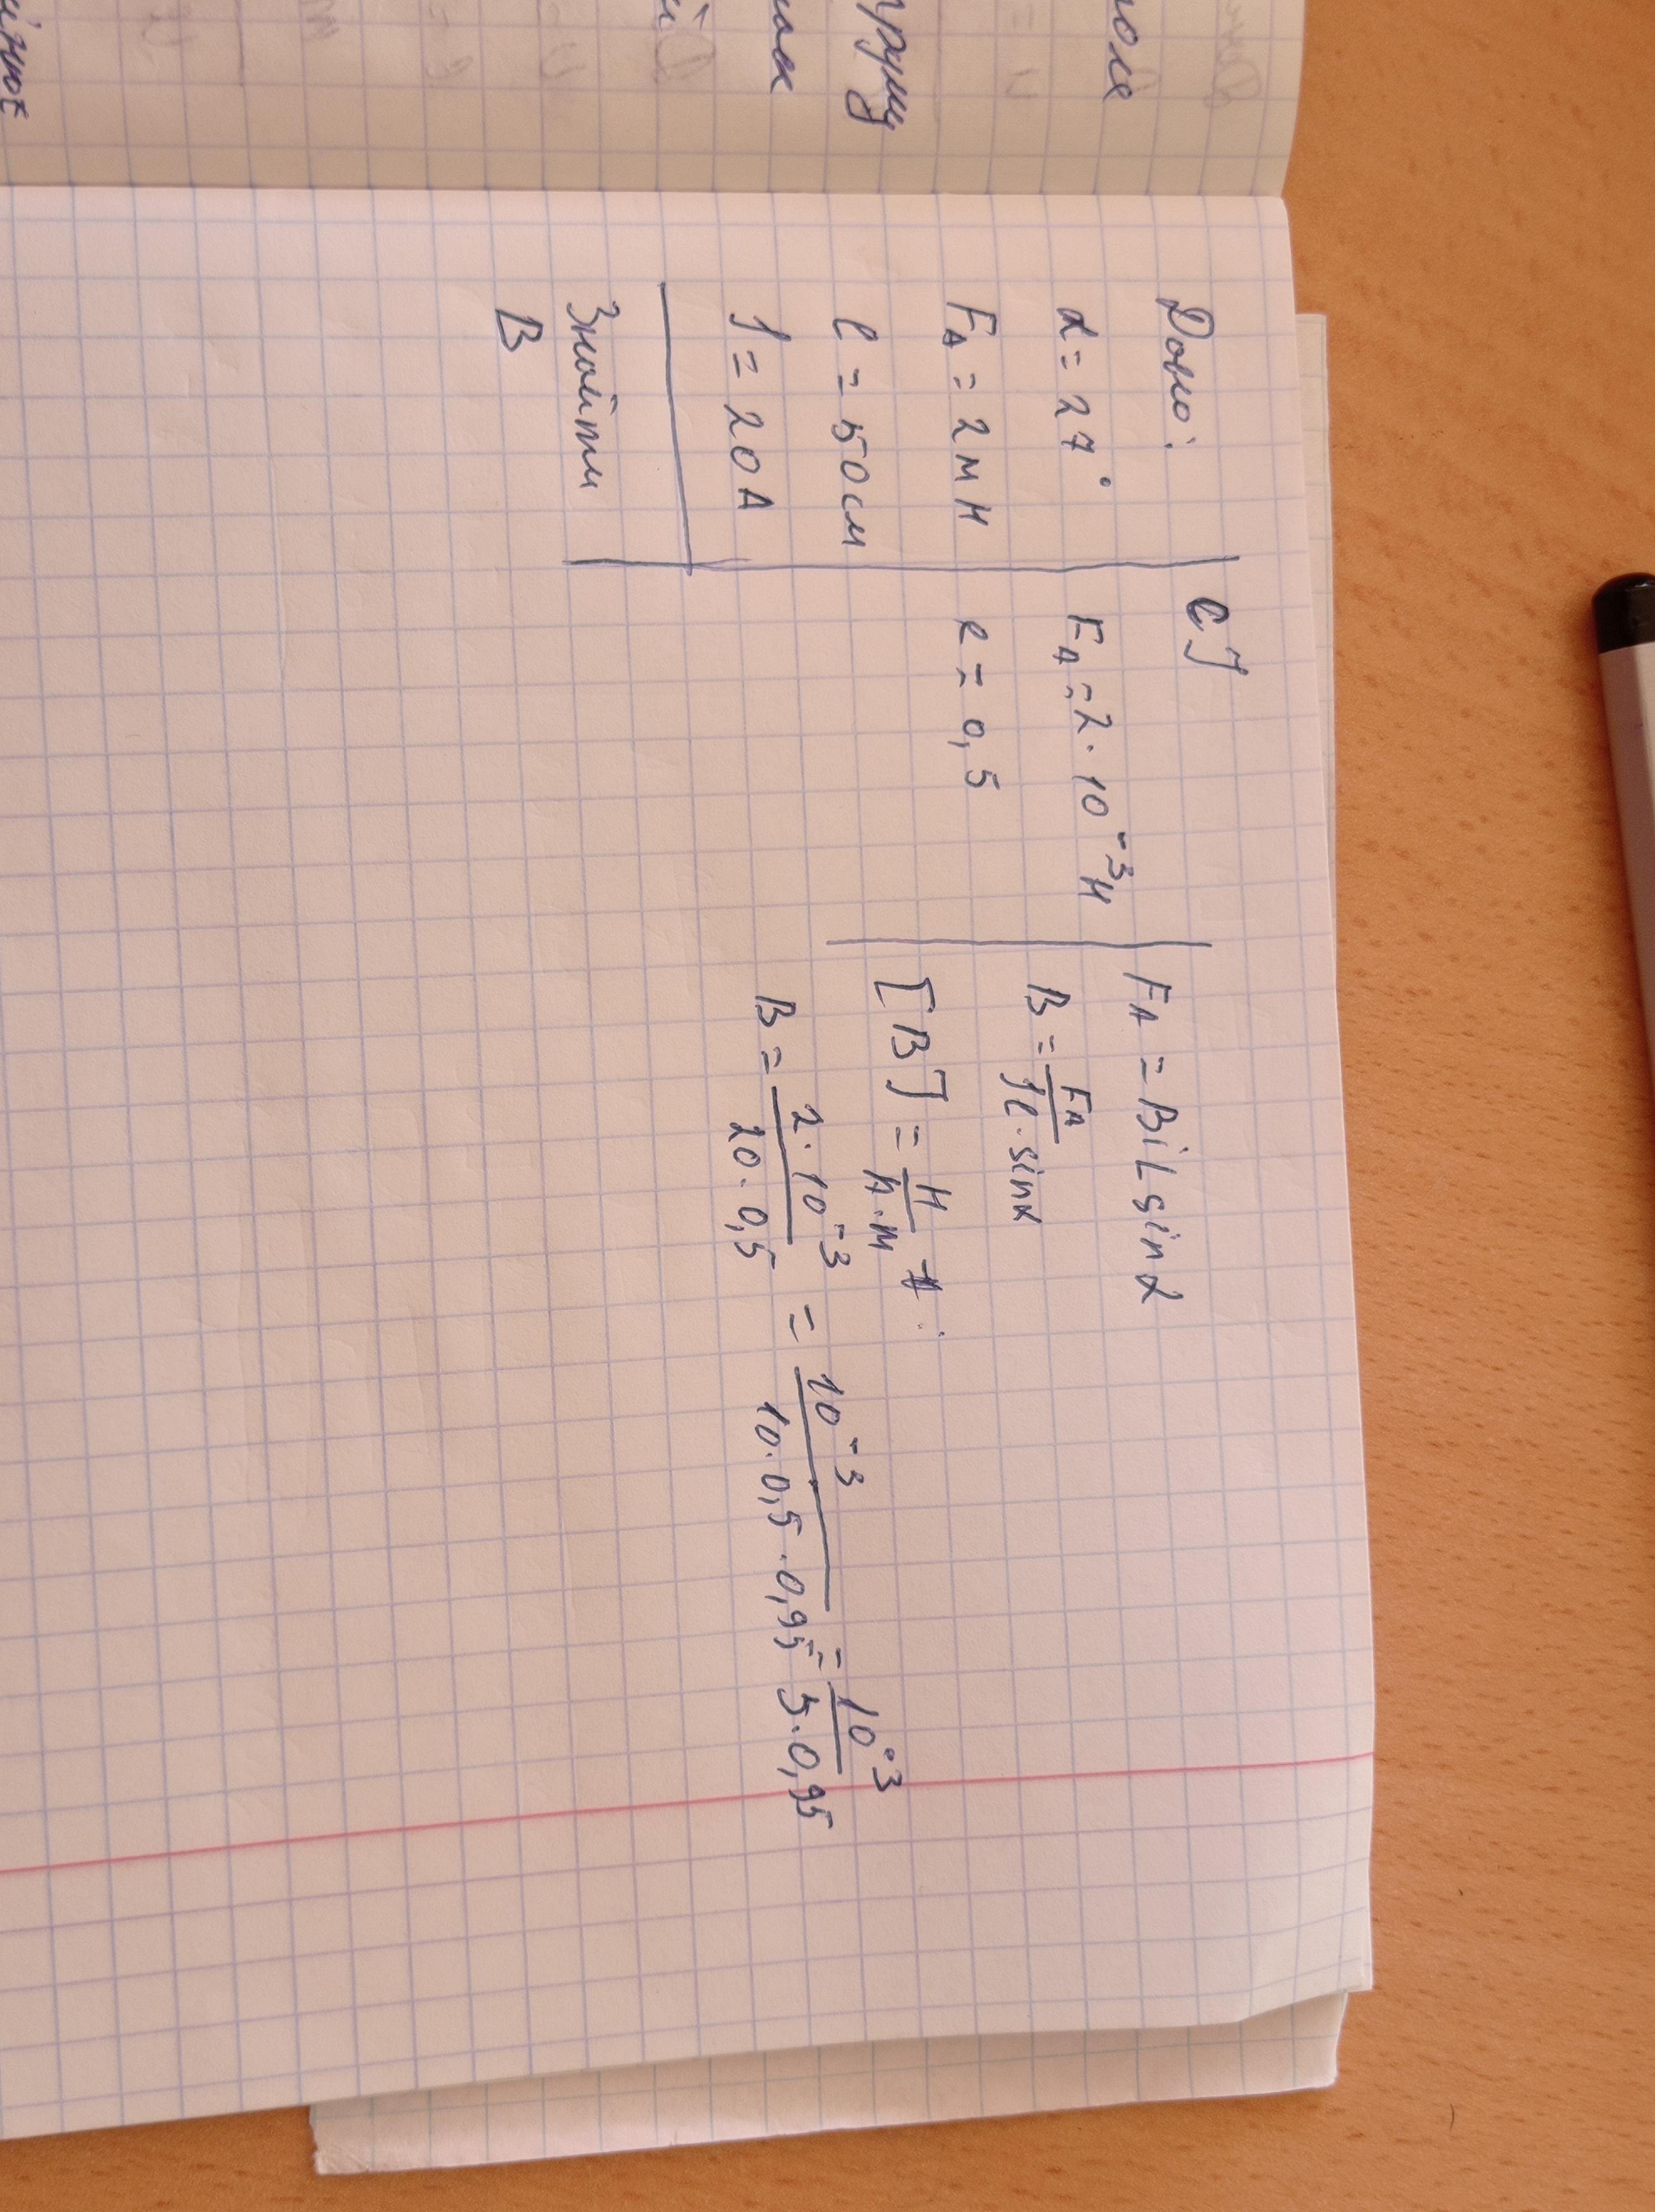 поля
групу
Дано:
α = 27°
F_A = 2 мН
l = 50 см
I = 20 А
Знайти
B
СІ
F_A = 2 · 10⁻³ Н
l = 0,5
F_A = B i L sin α
B = F_A / (I l · sin α)
[B] = Н / (А · м)
B = (2 · 10⁻³) / (20 · 0,5) = 10⁻³ / (10 · 0,5 · 0,95) = 10⁻³ / (5 · 0,95)